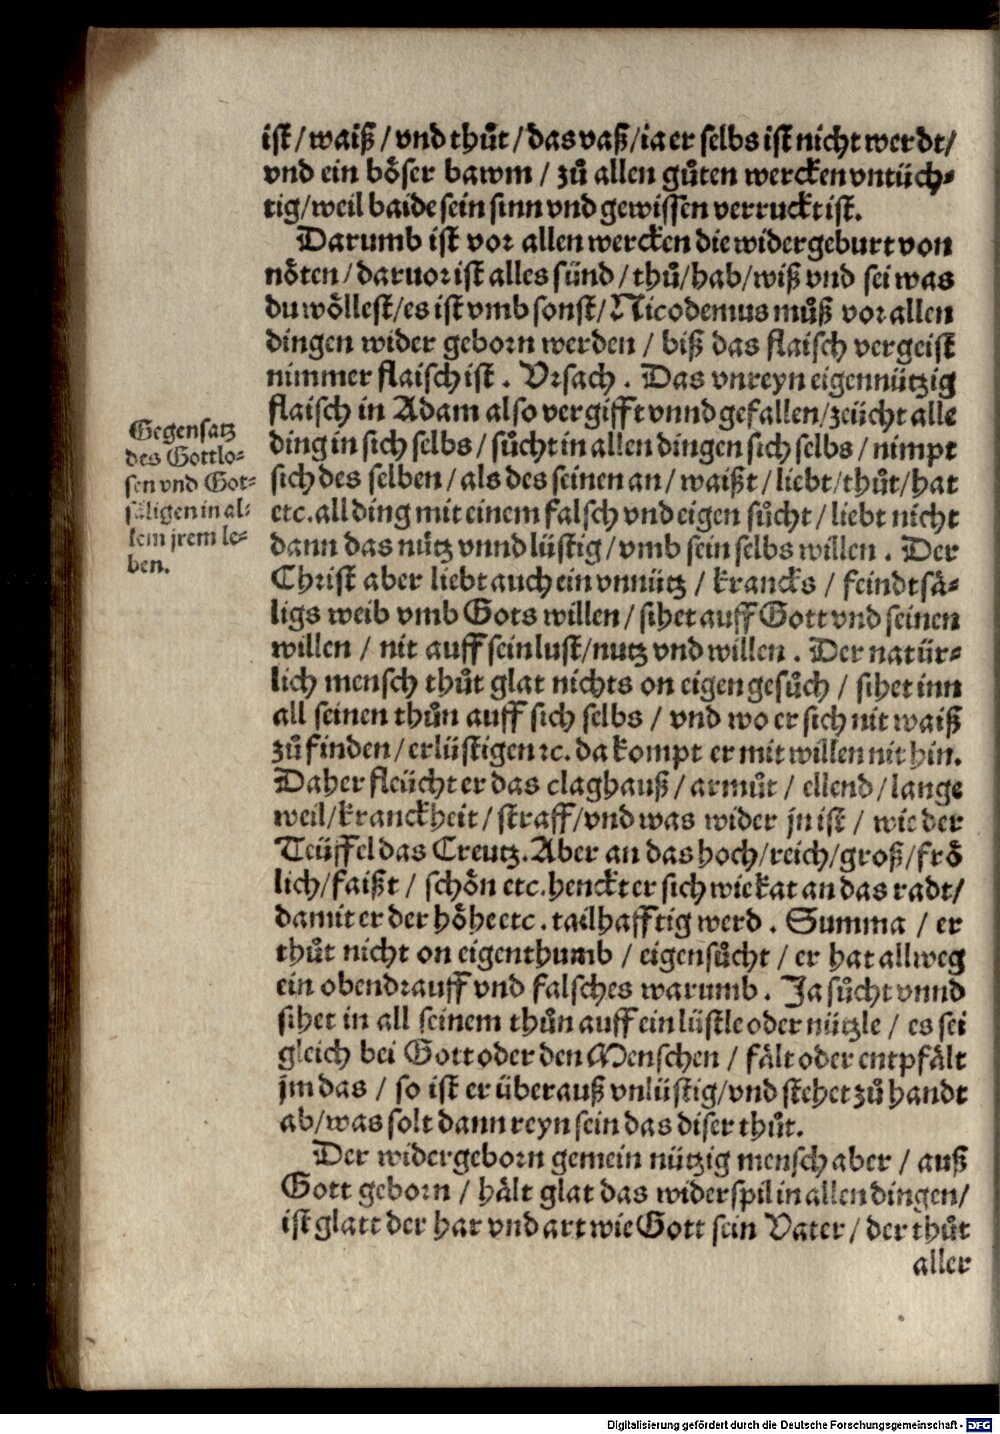 ist / waiß / vnd thůt / das vaß / ia er selbs ist nicht werdt /
vnd ein böser bawm / zů allen gůten wercken vntüch⸗
tig / weil baide sein sinn vnd gewissen verruckt ist.
Darumb ist vor allen wercken die widergeburt von
nöten / daruor ist alles sünd / thů / hab / wiß vnd sei was
du wöllest / es ist vmb sonst / Nicodemus můß vor allen
dingen wider geborn werden / biß das flaisch vergeist
nimmer flaisch ist . Vrsach . Das vnreyn eigennützig
flaisch in Adam also vergifft vnnd gefallen / zeücht alle
ding in sich selbs / sůcht in allen dingen sich selbs / nimpt
sich des selben / als des seinen an / waißt / liebt / thůt / hat
etc. all ding mit einem falsch vnd eigen sůcht / liebt nicht
dann das nütz vnnd lüstig / vmb sein selbs willen . Der
Christ aber liebt auch ein vnnütz / krancks / feindtsä⸗
ligs weib vmb Gots willen / sihet auff Gott vnd seinen
willen / nit auff sein lust / nutz vnd willen . Der natür⸗
lich mensch thůt glat nichts on eigen gesůch / sihet inn
all seinen thůn auff sich selbs / vnd wo er sich nit waiß
zů finden / erlüstigen ꝛc. da kompt er mit willen nit hin.
Daher fleücht er das claghauß / armůt / ellend / lange
weil / kranckheit / straff / vnd was wider jn ist / wie der
Teüffel das Creutz. Aber an das hoch / reich / groß / frö
lich / faißt / schön etc. henckt er sich wie kat an das radt /
damit er der höhe etc . tailhafftig werd . Summa / er
thůt nicht on eigenthumb / eigensůcht / er hat allweg
ein obendrauff vnd falsches warumb . Ja sůcht vnnd
sihet in all seinem thůn auff ein lüstle oder nützle / es sei
gleich bei Gott oder den Menschen / fält oder entpfält
jm das / so ist er überauß vnlüstig / vnd stehet zů handt
ab / was solt dann reyn sein das diser thůt.
Der widergeborn gemein nützig mensch aber / auß
Gott geborn / hält glat das widerspil in allen dingen /
ist glatt der har vnd art wie Gott sein Vater / der thůt
aller
Gegensatz
des Gottlo⸗
sen vnd Got⸗
säligen in al⸗
lem jrem le⸗
ben.
Digitalisierung gefördert durch die Deutsche Forschungsgemeinschaft - DFG